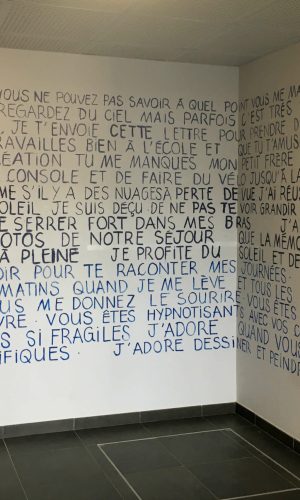 VOUS NE POUVEZ PAS SAVOIR À QUEL POINT VOUS ME MA
REGARDEZ DU CIEL MAIS PARFOIS C'EST TRÈS
JE T'ENVOIE CETTE LETTRE POUR PRENDRE D
TRAVAILLES BIEN À L'ÉCOLE ET QUE TU T'AMUS
RÉATION TU ME MANQUES MON PETIT FRÈRE
CONSOLE ET DE FAIRE DU VÉLO JUSQU'À LA
ME S'IL Y A DES NUAGES À PERTE DE VUE J'AI RÉUS
OLEIL JE SUIS DÇU DE NE PAS TE VOIR GRANDIR
E SERRER FORT DANS MES BRAS J'A
OTOS DE NOTRE SÉJOUR QUE LA MÉMO
À PLEINE JE PROFITE DU SOLEIL ET DE
OIR POUR TE RACONTER MES JOURNÉES
MATINS QUAND JE ME LÈVE ET TOUS LES
US ME DONNEZ LE SOURIRE VOUS ÊTES
VRE. VOUS ÊTES HYPNOTISANT AVEC VOS
S SI FRAGILES J'ADORE QUAND VOUS
IFIQUES. J'ADORE DESSINER ET PEINDR